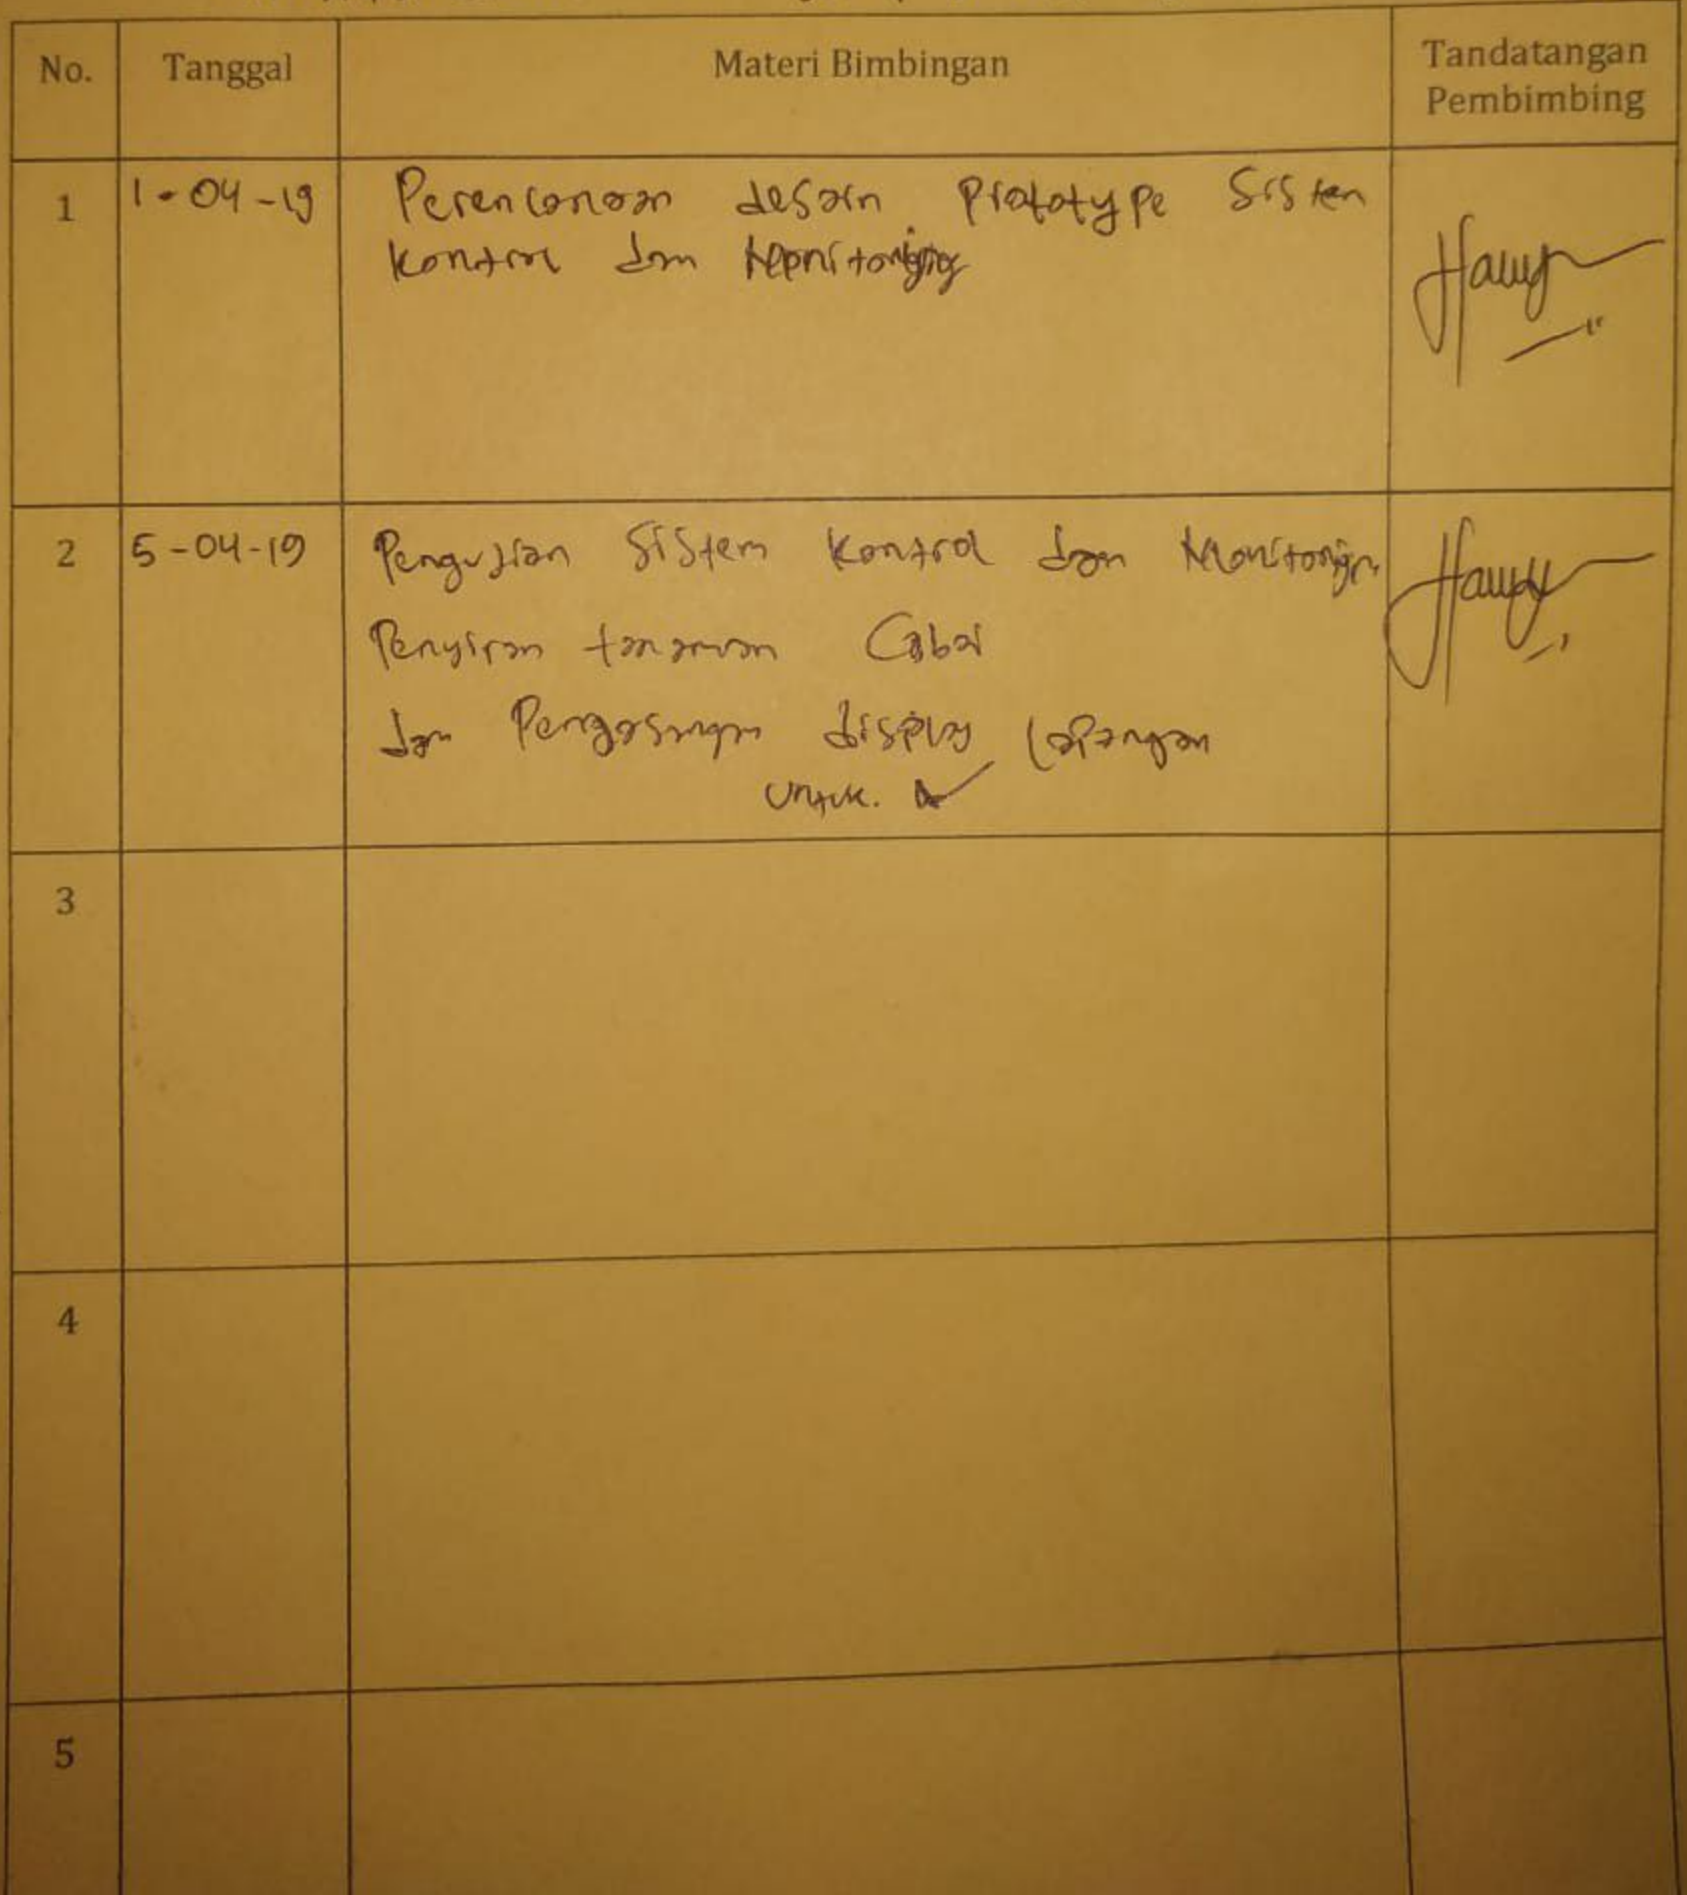 No.
Tanggal
Materi Bimbingan
Tandatangan
Pembimbing
1
1-04-19
Perencanaan desain Prototype Sistem
kontrol dan Monitoring
2
5-04-19
Pengujian Sistem Kontrol dan Monitoring
Penyiran tanaman Cabai
dan display lapangan
untuk.
3
4
5